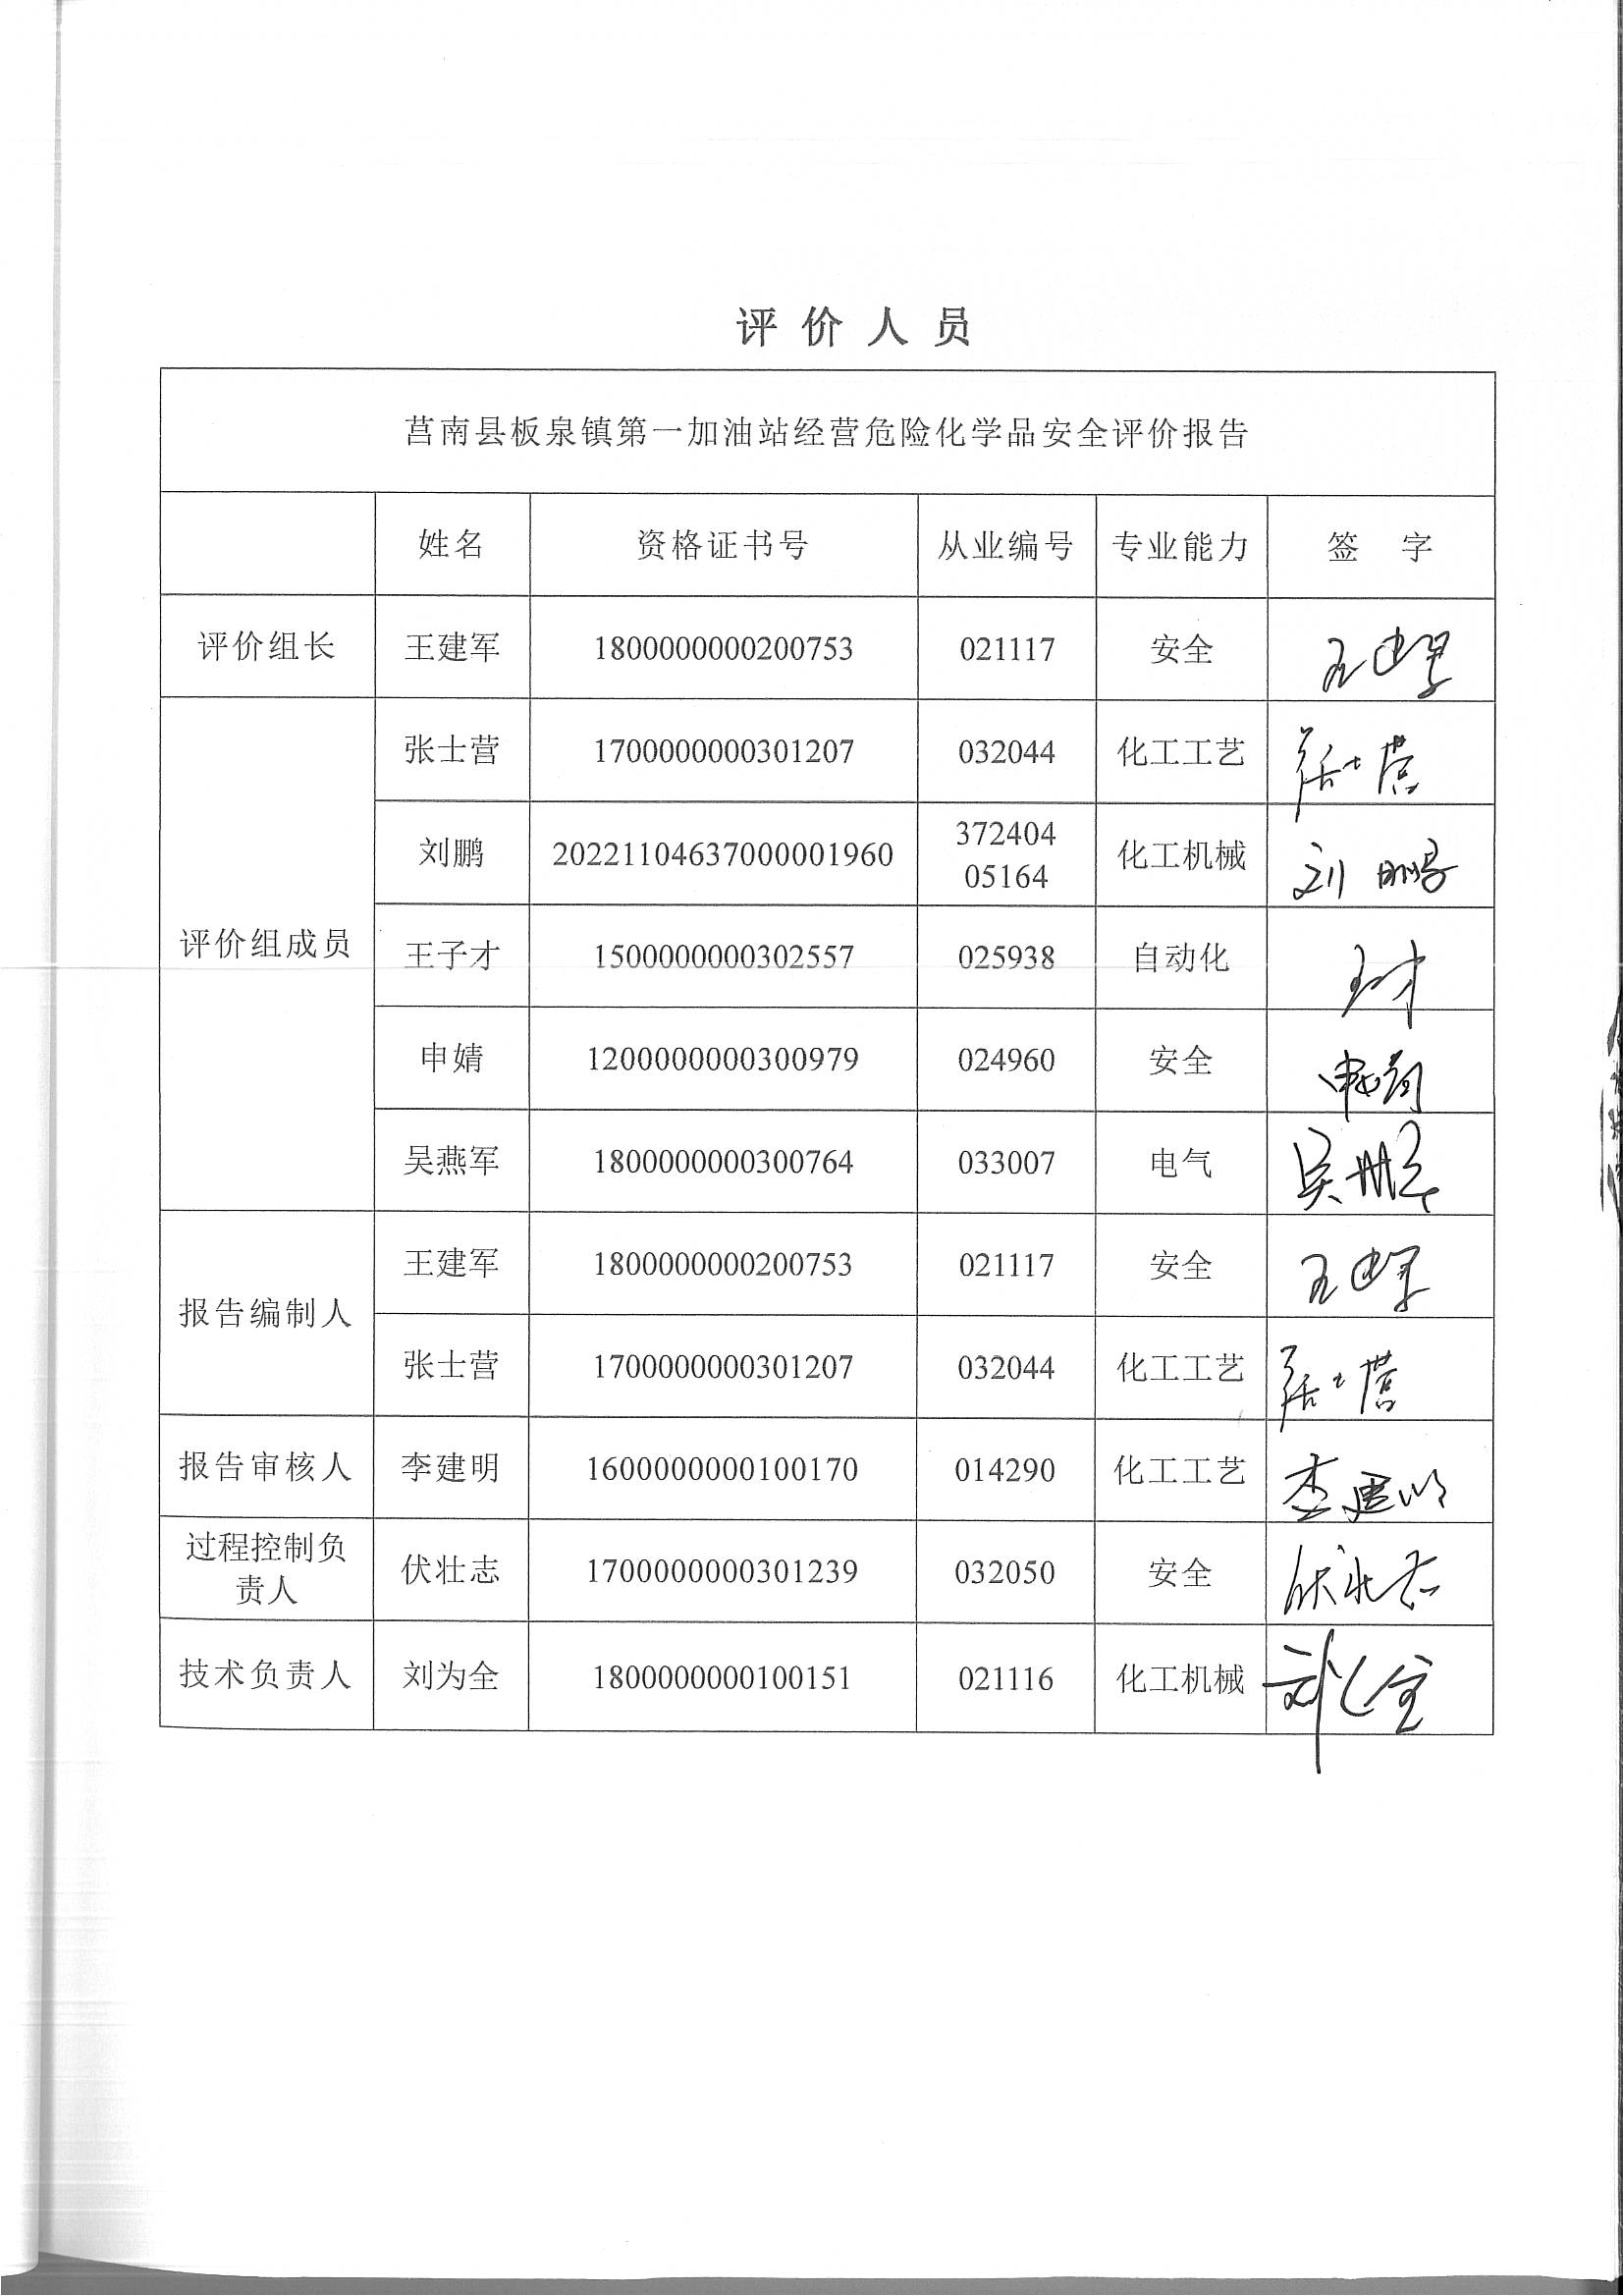 评价人员
莒南县板泉镇第一加油站经营危险化学品安全评价报告
姓名 资格证书号 从业编号 专业能力 签 字
评价组长 王建军 1800000000200753 021117 安全 王建军
评价组成员 张士营 1700000000301207 032044 化工工艺 张士营
刘鹏 20221104637000001960 372404 05164 化工机械 刘鹏
王子才 1500000000302557 025938 自动化 王子才
申婧 1200000000300979 024960 安全 申婧
吴燕军 1800000000300764 033007 电气 吴燕军
报告编制人 王建军 1800000000200753 021117 安全 王建军
张士营 1700000000301207 032044 化工工艺 张士营
报告审核人 李建明 1600000000100170 014290 化工工艺 李建明
过程控制负责人 伏壮志 1700000000301239 032050 安全 伏壮志
技术负责人 刘为全 1800000000100151 021116 化工机械 刘为全